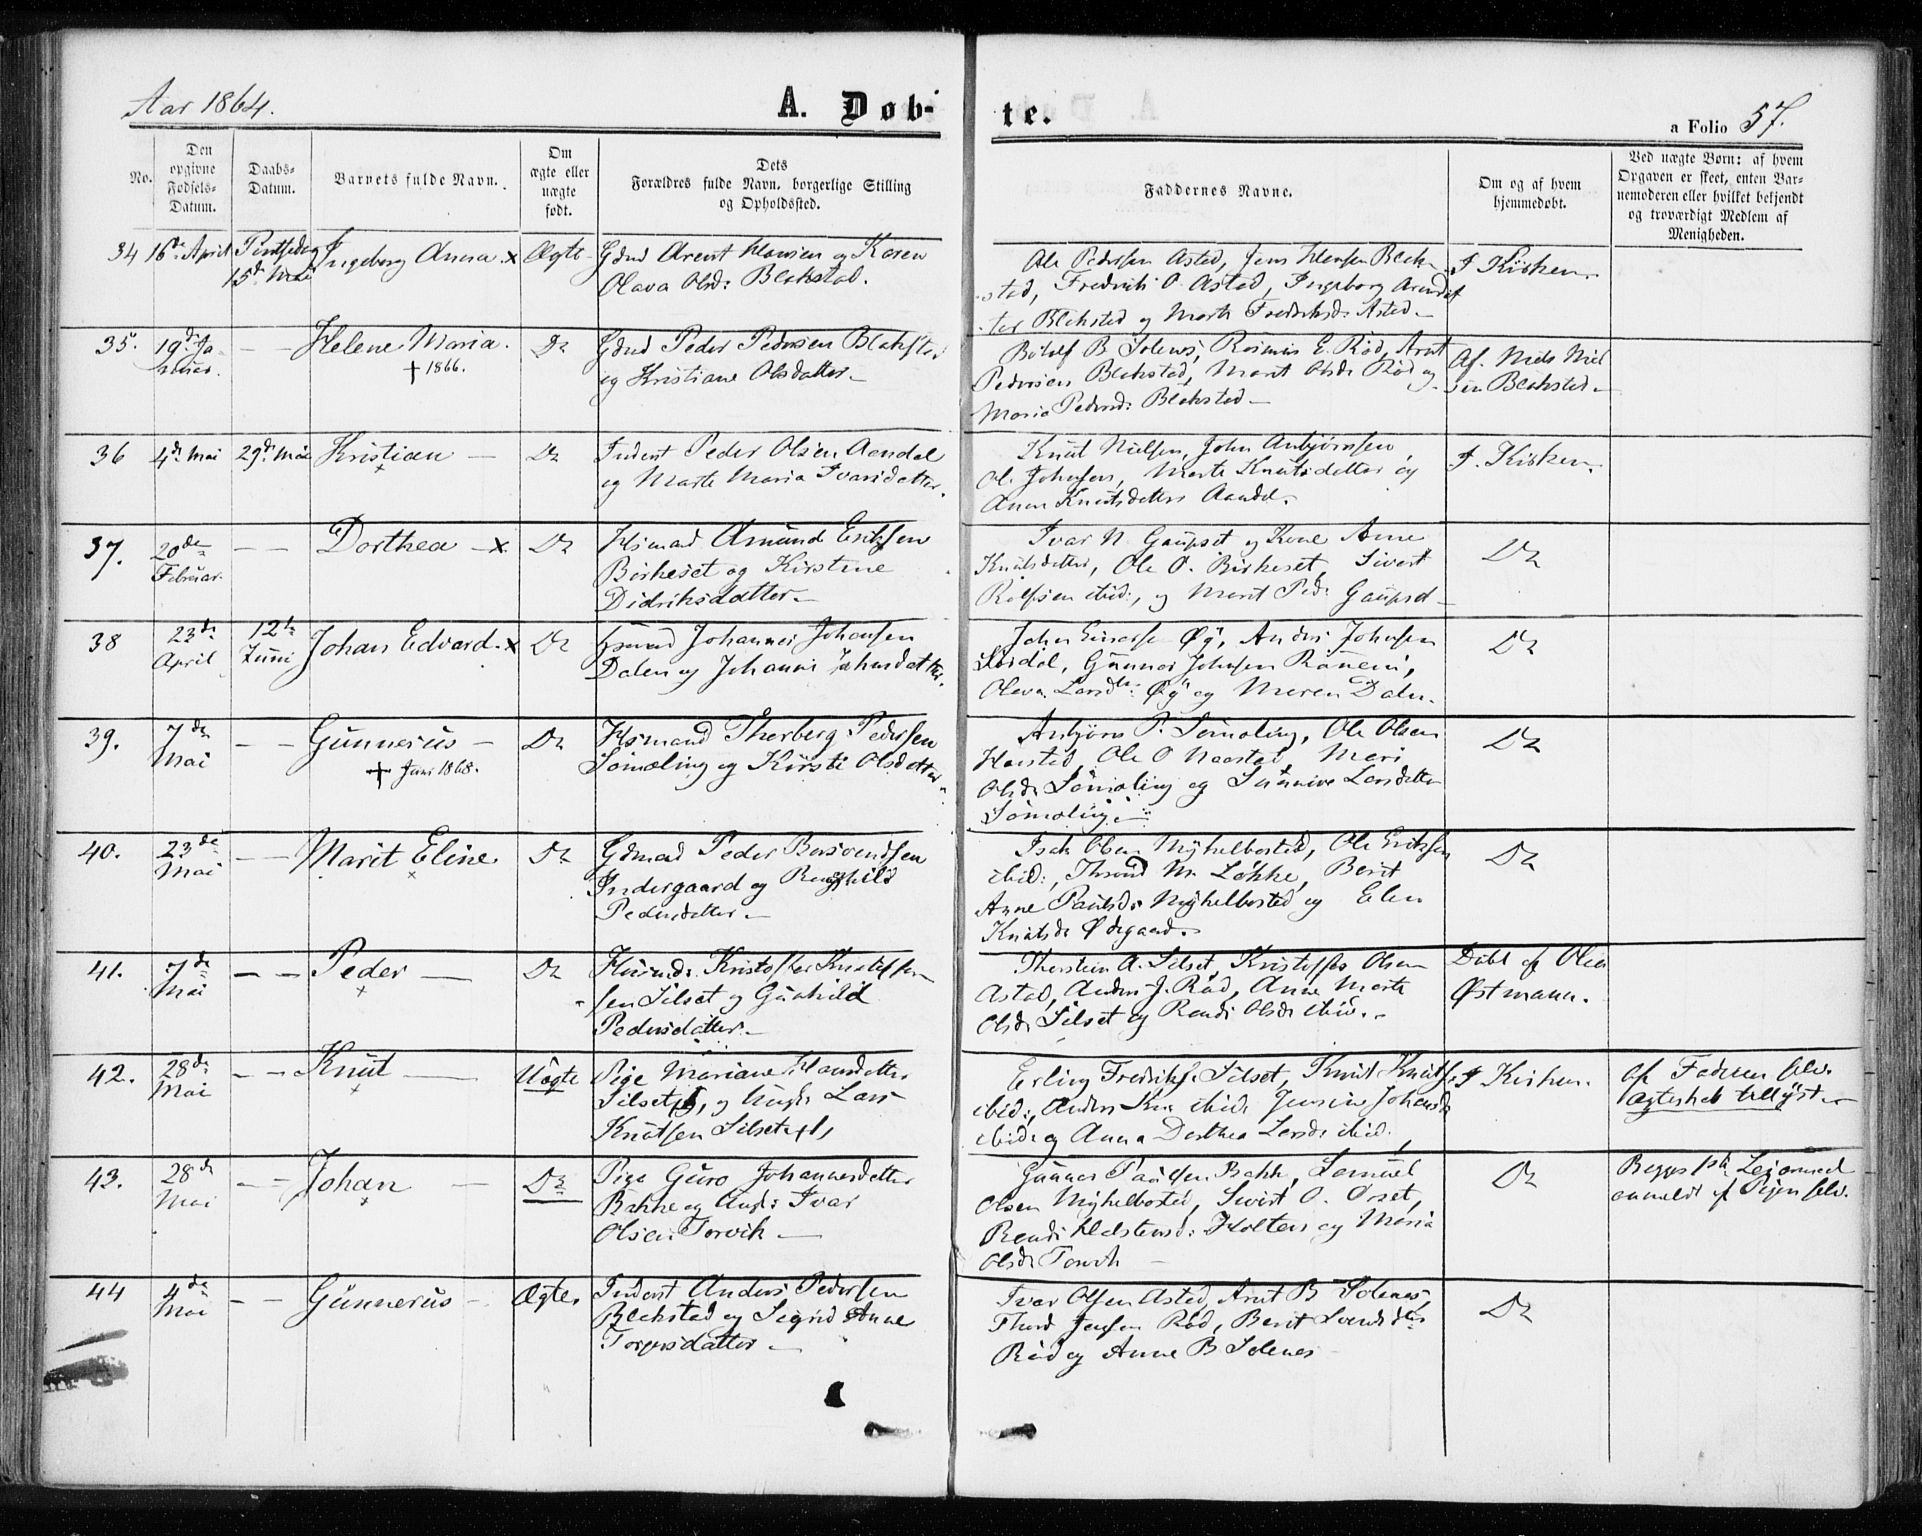 Aar 1864.
A. Døb-
te.
a Folio 57.
No.
Den opgivne Fødsels-Datum.
Daabs-Datum.
Barnets fulde Navn.
Om ægte eller uægte født.
Dets Forældres fulde Navn, borgerlige Stilling og Opholdssted.
Faddernes Navne.
Om og af hvem hjemmedøbt.
Ved uægte Børn: af hvem Opgaven er skeet, enten Barnemoderen eller hvilket bekjendt og troværdigt Medlem af Menigheden.
34 16de April 15de Mai Ingeborg Anna x Ægte
Gdmd Arent Hansen og Karen
Olava Olsd: Blakstad.
Ole Pedersen Astad, Jens Hansen Blak-
stad, Fredrik O. Astad, Ingeborg Arendsdat
ter Blakstad og Marit Fredriksd: Astad
I Kirken.
35. 19de Januar. — — Helene Maria. Do
† 1866.
Gdmd Peder Pedersen Blakstad
og Kristiane Olsdatter
B. Solenes, Rasmus E. Rød, Arnt
Pedersen Blakstad, Marit Olsdr Rød og
Maria Pedersd: Blakstad
Af Niels Niel
sen Blakstad
36 4de Mai 29de Mai Kristian Do
Inderst Peder Olsen Aandal
og Marte Maria Ivarsdatter.
Knut Nielsen, John Anbjørnsen
Ole Johnsen, Marte Knutsdatter og
Anne Knutsdatter Aandal.
I Kirken.
37. 20de Februar. — — Dorthea x Do
Hsmand Amund Eriksen
Birkeset og Kirstine
Didriksdatter
Ivar N. Gaupset og Kone Anne
Knutsdatter, Ole O. Birkeset, Sivert
Rolfsen ibid:, og Marit Pedr Gaupset
Do
38 23de April 12te Juni Johan Edvard x Do
Johannes Johansen
Dalen og Johanne Johnsdatter.
John Einarsen Øy, Anders Johnsen
Gunnar Johnsen
Olava Larsdtr: Øy og Maren Dalen.
Do
39. 7de Mai — — Gunnerus Do
† Juni 1868.
Hsmand Therberg Pedersen
Sømoling og Kirsti Olsdatter
Anbjørn P. Sømoling, Ole Olsen
Ole O Naastad, Mari
Olsdr Sømoling og Larsdatter
Sømoling
Do
40. 23de Mai — — Marit Eline Do
Gdmand Peder
Indergaard og Ranghild
Pedersdatter
Isak Olsen Myklebostad, Ole Eriksen
ibid:, Thrond M. Løkke, Berit
Anne Paulsdr Myklebostad og Elen
Knutsdr Ødegaard.
Do
41. 7de Mai — — Peder Do
Kristoffer Kristoffer
sen Silset og Gunhild
Pedersdatter
Therstein A. Silset, Kristoffer Olsen
Astad, Anders J. Rød, Anne Marte
Olsdr Silset og Randi Olsdr ibid.
Døbt af Olea
Østmann.
42. 28de Mai — — Knut Uægte
Pige Mariane Hansdatter
Silset, og Ungk Lars
Knutsen Silset
Erling Fredriks. Silset, Knut Knuts.
ibid:, Anders Kn. ibid. Jensine Johansdr
ibid: og Anna Dorthea Larsdr ibid:
I Kirken.
af Faderen selv
43. 28de Mai — — Johan Do
Pige Guro Johannesdatter
Bakke og Ungk: Ivar
Olsen Torvik
Gunnar Paulsen Bakk, Samuel
Olsen Myklebostad, Sivert O. Orset,
Randi Halstensd: Holten og Maria
Olsdr Torvik
Do
Begges 1ste Leiermaal
anmeldt af Pigen selv.
44 4de Mai — — Gunnerus Ægte
Inderst Anders Pedersen
Blakstad og Sigrid Anne
Torgersdatter
Ivar Olsen Astad, Arnt B Solenes,
Jensen Rød, Berit
Rød og Anne B Solenes
Do